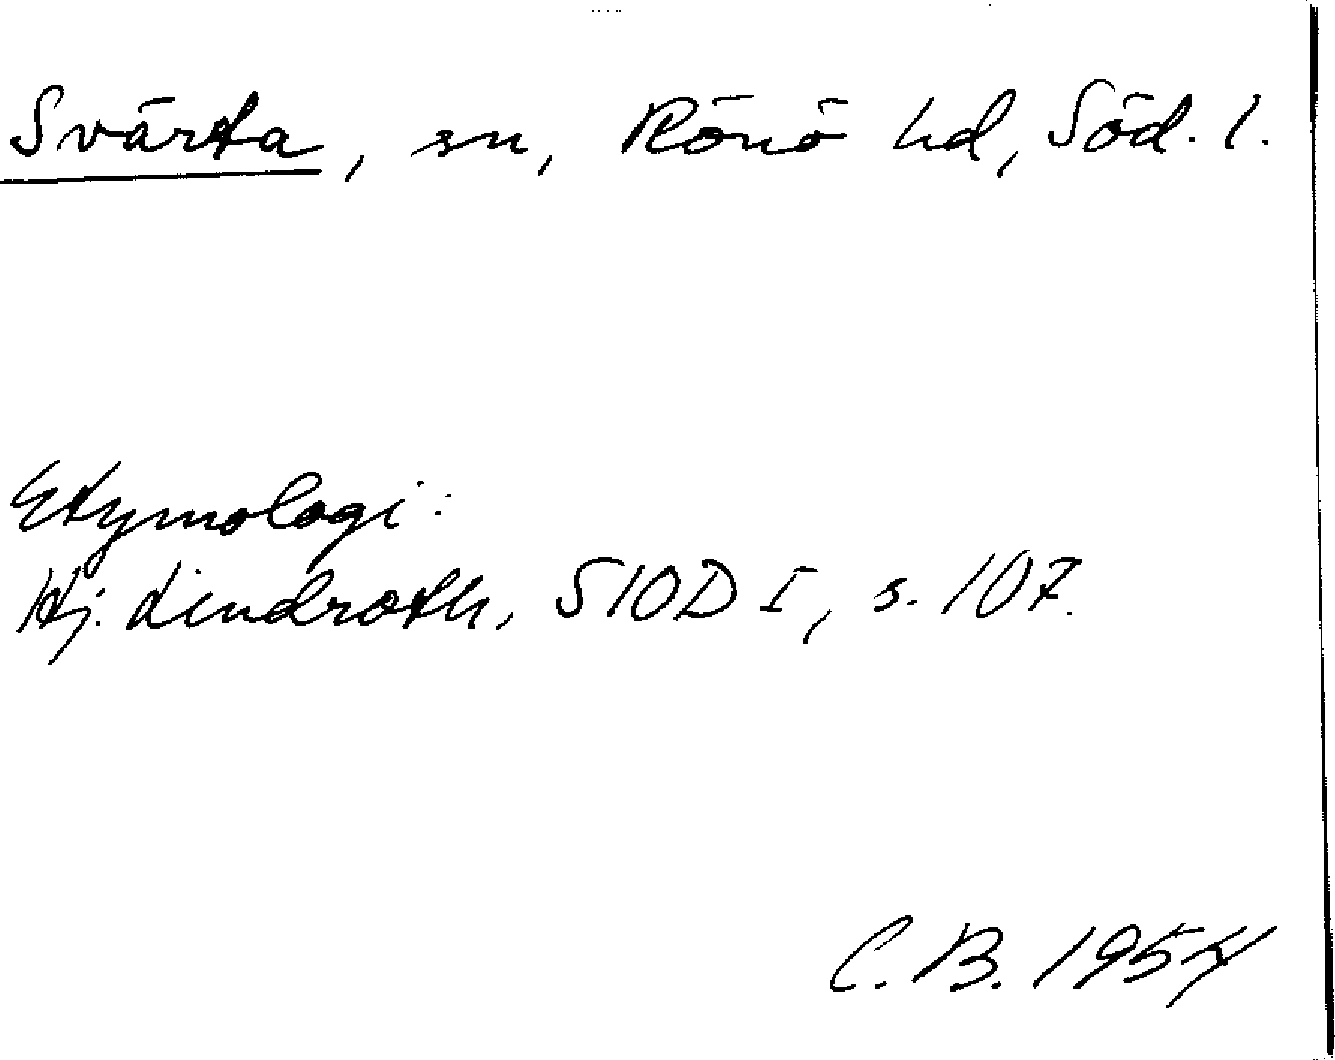 Svärta, sn, Rönö hd, Söd. l.
Etymologi:
Hj. Lindroth, SIOD I, s. 107.
C. B. 1954